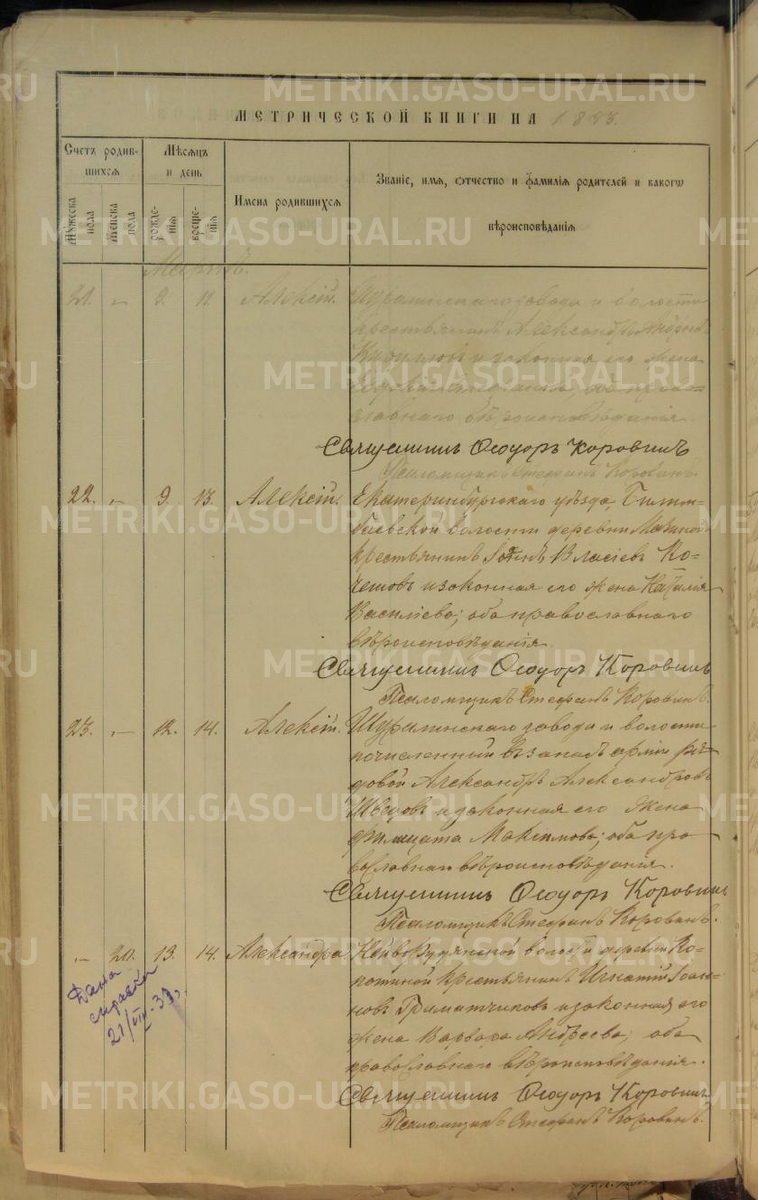 МЕТРИЧЕСКОЙ КНИГИ НА 1883.
Счетъ родив-
шихся
Мѣсяцъ
и день
Имена родившихся
Званіе, имя, отчество и фамилія родителей и какого
вѣроисповѣданія
Мужеска пола
Женска пола
рожде-
нія
креще-
нія
21. „ 9. 11. Алексій.
завода и волости
крестьянинъ Александръ
и законная его жена
оба право-
славнаго вѣроисповѣданія.
Священникъ Ѳеодоръ Коровинъ
Псаломщикъ Стефанъ Коровинъ.
22. „ 9. 13. Алексій. Екатеринбургскаго уѣзда, Билим-
баевской волости деревни
крестьянинъ Іоаннъ Власіевъ Ко-
чешовъ и законная его жена Наталія
Васильева; оба православнаго
вѣроисповѣданія.
Священникъ Ѳеодоръ Коровинъ
Псаломщикъ Стефанъ Коровинъ.
23. „ 12. 14. Алексій. Шуралинскаго завода и волости
зачисленный въ запасъ арміи ря-
довой Александръ Александровъ
Швецовъ и законная его жена
Филицата Максимова; оба пра
вославнаго вѣроисповѣданія.
Священникъ Ѳеодоръ Коровинъ
Псаломщикъ Стефанъ Коровинъ.
„ 20. 13. 14. Александра Нейворудянской волости деревни Ко-
потиной крестьянинъ Игнатій Іоан-
новъ и законная его
жена Варвара Андреева; оба
православнаго вѣроисповѣданія.
Священникъ Ѳеодоръ Коровинъ
Псаломщикъ Стефанъ Коровинъ.
Дана
справка
21/VIII-39г.
METRIKI.GASO-URAL.RU